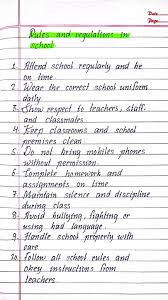 Date
Page
Rules and regulations in
school
1. Attend school regularly and be
on time
2. Wear the correct school uniform
daily
3. Show respect to teachers, staff
and classmates
4. Keep classrooms and school
premises clean
5. Do not bring mobiles phones
without permission.
6. Complete homework and
assignments on time.
7. Maintain silence and discipline
during class
8. Avoid bullying, fighting or
using bad language.
9. Handle school property with
care
10. Follow all school rules and
obey instructions from
teachers